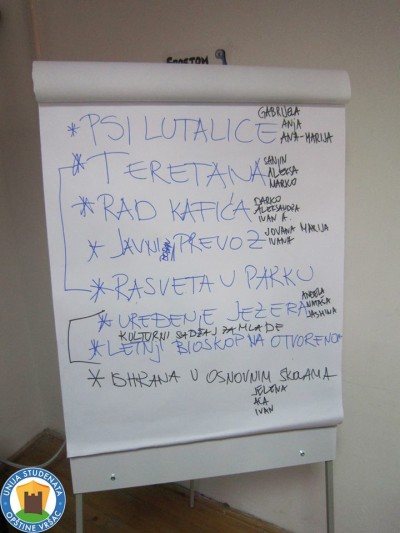 GABRIJELA
* PSI LUTALICE ANJA
ANA-MARIJA
* TERETANA
ALEKSA
MARKO
* RAD KAFIĆA DARKO
ALEKSANDRA
IVAN A.
* JAVNI PREVOZ JOVANA MARIJA
IVANA
* RASVETA U PARKU
* UREĐENJE JEZERA ANĐELA
NATAŠA
JASMINA
KULTURNI SADŽAJ ZA MLADE
* LETNJI BIOSKOP NA OTVORENOM
* ISHRANA U OSNOVNIM ŠKOLAMA
JELENA
ACA
IVAN
UNIJA STUDENATA
OPŠTINE VRŠAC